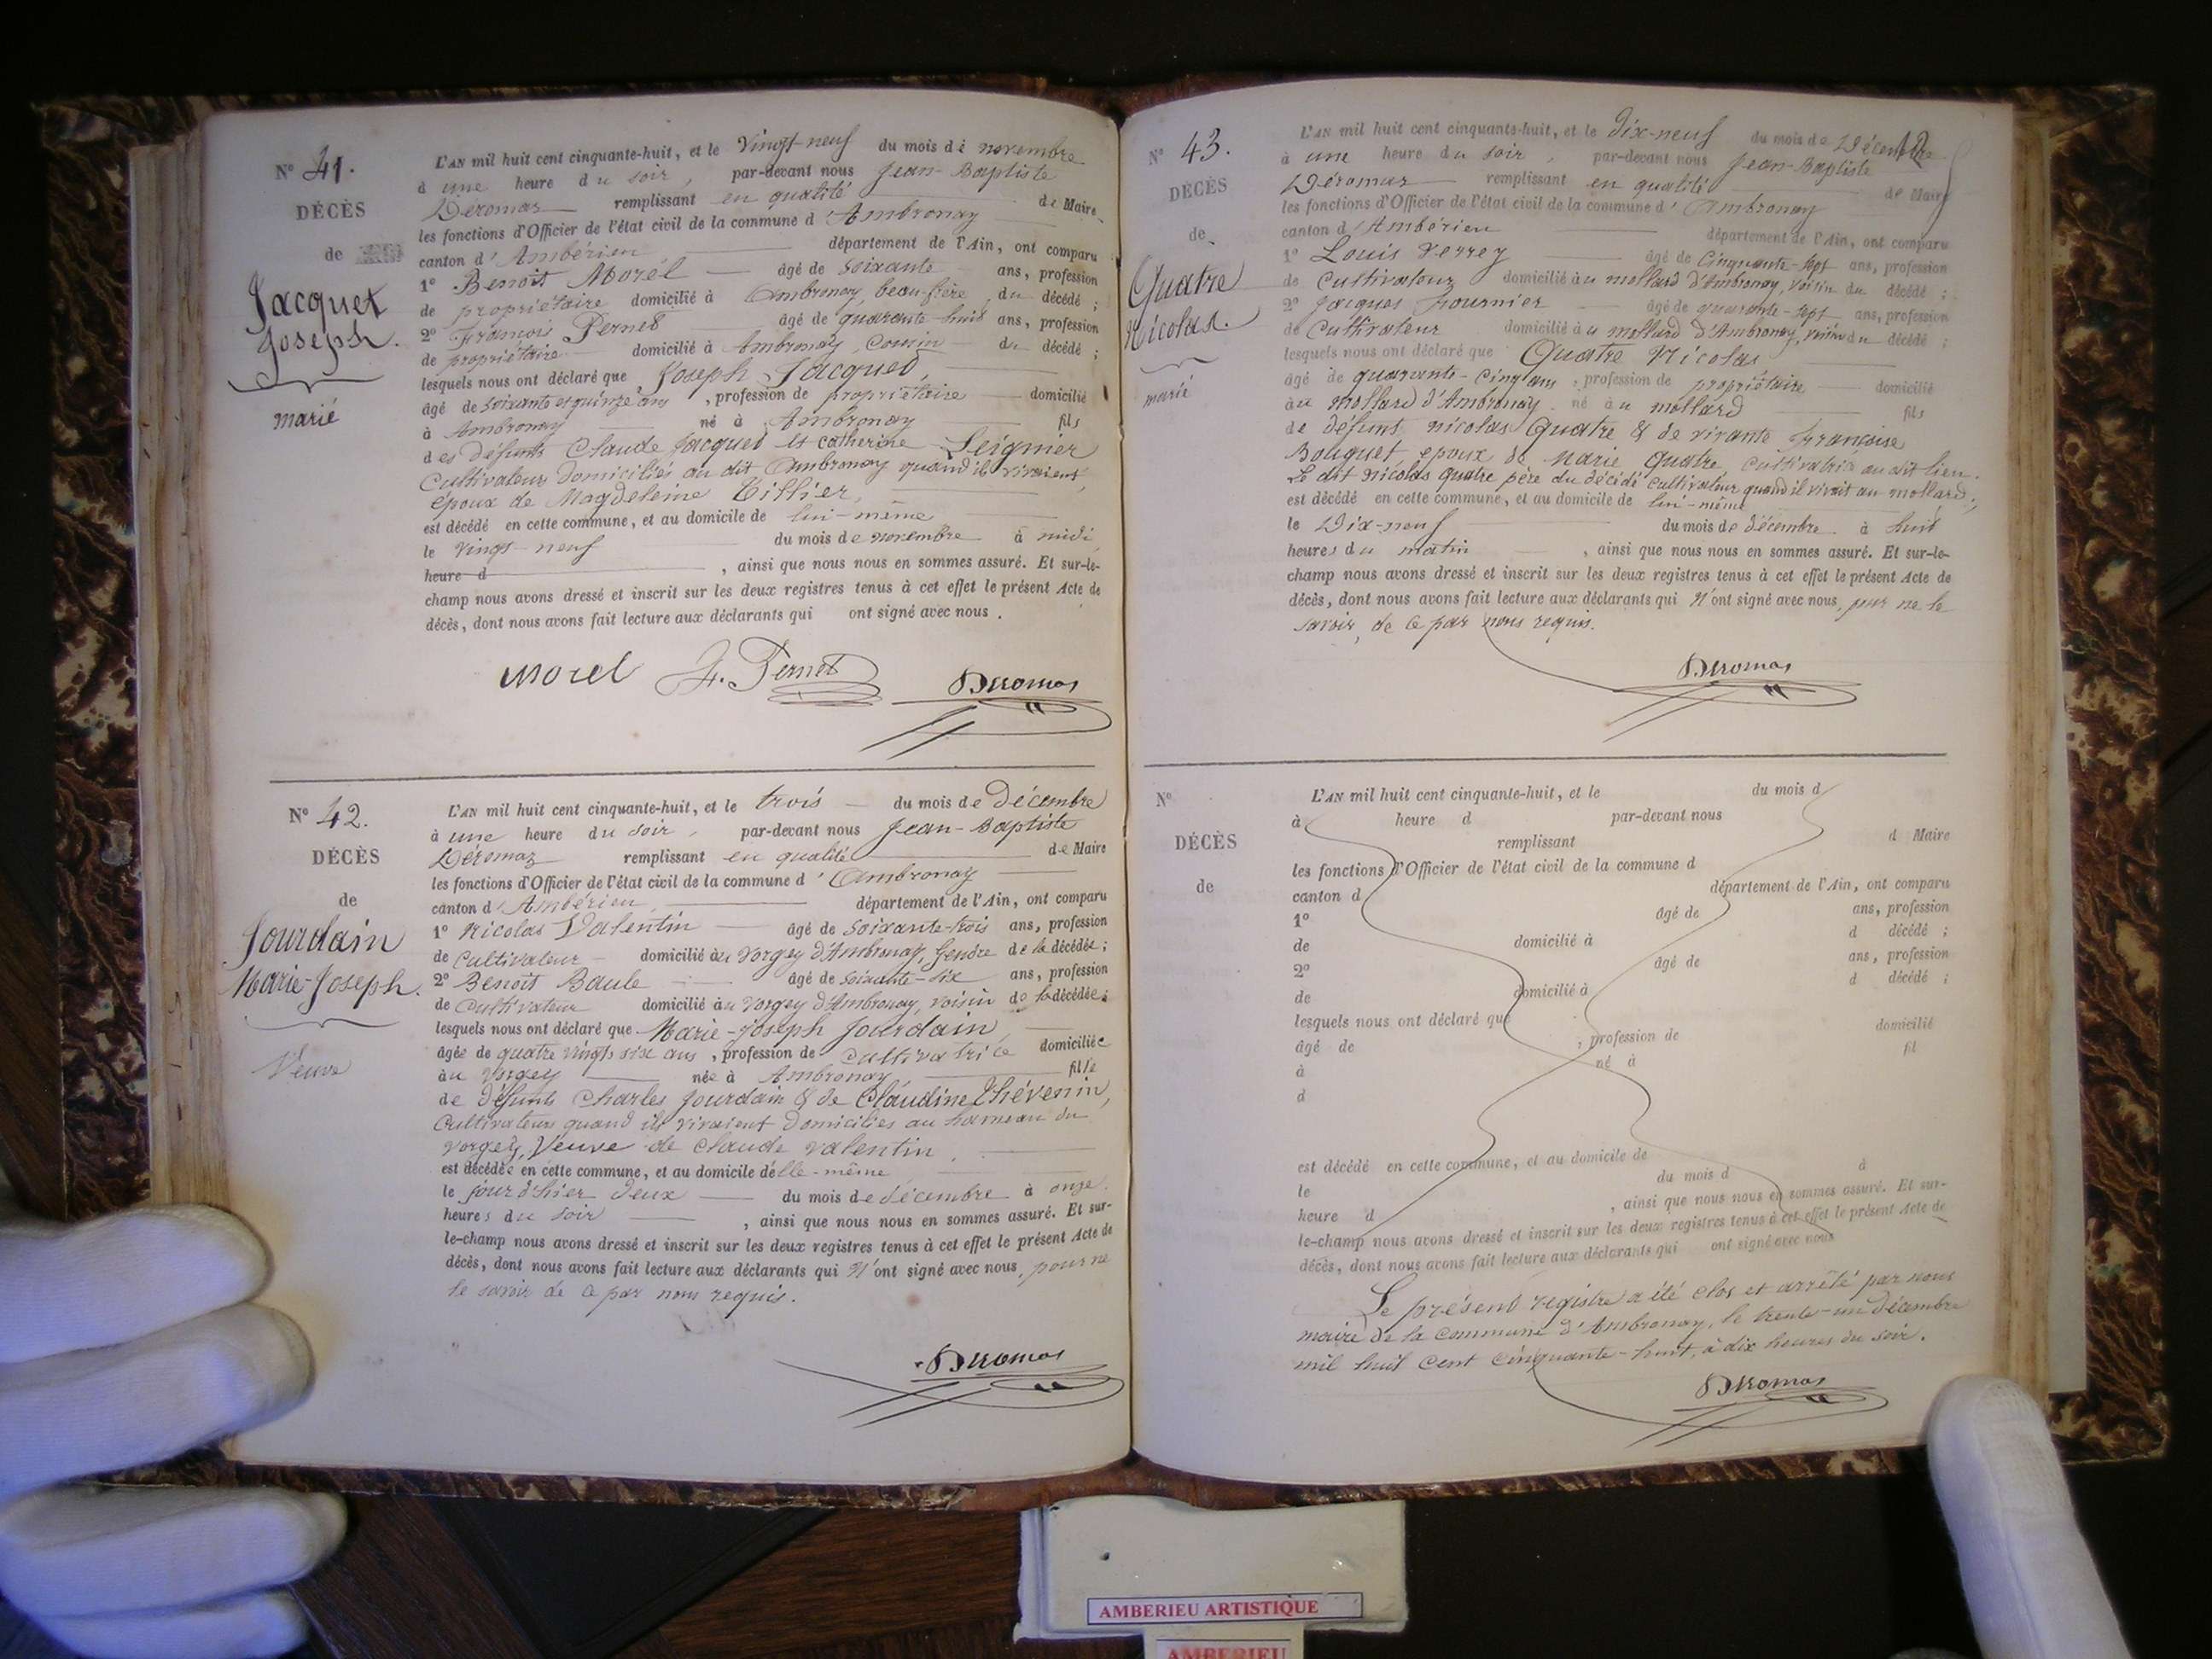 N° 41.
DÉCÈS
de
Jacquet
Joseph.
marié
L'AN mil huit cent cinquante-huit, et le vingt-neuf du mois de novembre
à une heure du soir, par-devant nous Jean-Baptiste
Déromas remplissant en qualité de Maire
les fonctions d'Officier de l'état civil de la commune d'Ambronay
canton d'Ambérieu département de l'Ain, ont comparu
1° Benoit Morel âgé de soixante ans, profession
de propriétaire domicilié à Ambronay, beau-frère du décédé ;
2° François Pernet âgé de quarante-huit ans, profession
de propriétaire domicilié à Ambronay, Cousin du décédé ;
lesquels nous ont déclaré que Joseph Jacquet,
âgé de soixante et quinze ans, profession de propriétaire domicilié
à Ambronay né à Ambronay fils
des défunts Claude Jacquet et Catherine Seignier
Cultivateurs domiciliés au dit Ambronay quand ils vivaient,
époux de Magdeleine Tillier,
est décédé en cette commune, et au domicile de lui-même
le vingt-neuf du mois de novembre à midi,
heure d , ainsi que nous nous en sommes assuré. Et sur-le-
champ nous avons dressé et inscrit sur les deux registres tenus à cet effet le présent Acte de
décès, dont nous avons fait lecture aux déclarants qui ont signé avec nous.
Morel F. Pernet Déromas
N° 42.
DÉCÈS
de
Jourdain
Marie-Joseph.
Veuve
L'AN mil huit cent cinquante-huit, et le trois du mois de Décembre
à une heure du soir, par-devant nous Jean-Baptiste
Déromas remplissant en qualité de Maire
les fonctions d'Officier de l'état civil de la commune d'Ambronay
canton d'Ambérieu département de l'Ain, ont comparu
1° Nicolas Valentin âgé de soixante-trois ans, profession
de Cultivateur domicilié au Vorgey d'Ambronay, Gendre de la décédée ;
2° Benoit Baule âgé de soixante-six ans, profession
de Cultivateur domicilié au Vorgey d'Ambronay, voisin de la décédée ;
lesquels nous ont déclaré que Marie-Joseph Jourdain,
âgée de quatre vingts six ans, profession de Cultivatrice domiciliée
au Vorgey née à Ambronay fille
de défunts Charles Jourdain & de Claudine Thévenin,
Cultivateurs quand ils vivaient domiciliés au hameau du
vorgey, Veuve de Claude Valentin,
est décédée en cette commune, et au domicile d'elle-même
le jour d'hier deux du mois de décembre à onze
heures du soir , ainsi que nous nous en sommes assuré. Et sur-
le-champ nous avons dressé et inscrit sur les deux registres tenus à cet effet le présent Acte de
décès, dont nous avons fait lecture aux déclarants qui N'ont signé avec nous, pour ne
le savoir de ce par nous requis.
Déromas
N° 43.
DÉCÈS
de
Quatre
Nicolas.
marié
L'AN mil huit cent cinquante-huit, et le Dix-neuf du mois de Décembre
à une heure du soir, par-devant nous Jean-Baptiste
Déromas remplissant en qualité de Maire
les fonctions d'Officier de l'état civil de la commune d'Ambronay
canton d'Ambérieu département de l'Ain, ont comparu
1° Louis Verrey âgé de Cinquante-sept ans, profession
de Cultivateur domicilié au mollard d'Ambronay, voisin du décédé ;
2° Jacques fournier âgé de quarante-sept ans, profession
de Cultivateur domicilié au mollard d'Ambronay, voisin du décédé ;
lesquels nous ont déclaré que Quatre Nicolas
âgé de quarante-cinq ans, profession de propriétaire domicilié
au mollard d'Ambronay né au mollard fils
de défunt nicolas Quatre & de vivante Françoise
Bouquet époux de Marie Quatre, cultivatrice au dit lieu.
Le dit Nicolas Quatre père du décédé cultivateur quand il vivait au mollard ;
est décédé en cette commune, et au domicile de lui-même
le Dix-neuf du mois de décembre à huit
heures du matin , ainsi que nous nous en sommes assuré. Et sur-le-
champ nous avons dressé et inscrit sur les deux registres tenus à cet effet le présent Acte de
décès, dont nous avons fait lecture aux déclarants qui N'ont signé avec nous, pour ne le
savoir, de ce par nous requis.
Déromas
N°
DÉCÈS
de
L'AN mil huit cent cinquante-huit, et le du mois d
à heure d par-devant nous
remplissant d Maire
les fonctions d'Officier de l'état civil de la commune d
canton d département de l'Ain, ont comparu
1° âgé de ans, profession
de domicilié à d décédé ;
2° âgé de ans, profession
de domicilié à d décédé ;
lesquels nous ont déclaré que
âgé de , profession de domicilié
à né à fil
d
est décédé en cette commune, et au domicile de
le du mois d à
heure d , ainsi que nous nous en sommes assuré. Et sur-
le-champ nous avons dressé et inscrit sur les deux registres tenus à cet effet le présent Acte de
décès, dont nous avons fait lecture aux déclarants qui ont signé avec nous
Le présent registre a été clos et arrêté par nous
maire de la commune d'Ambronay, le trente-un décembre
mil huit cent cinquante-huit, à dix heures du soir.
Déromas
AMBERIEU ARTISTIQUE
AMBERIEU